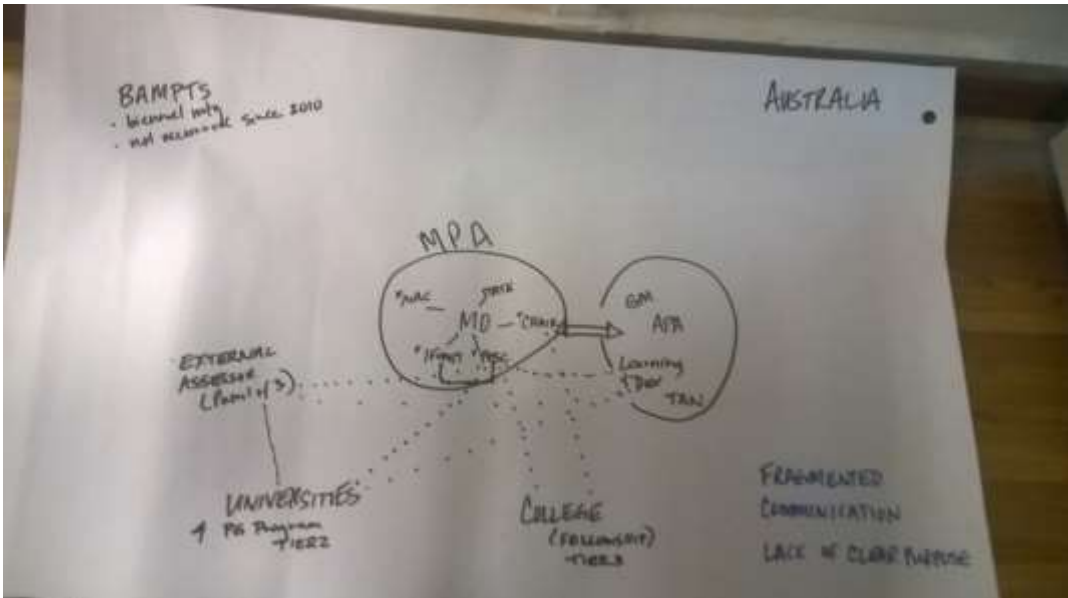 BAMPTS
· biennel mtg
· not since 2010
AUSTRALIA
MPA
STATE
MO
*CHAIR
GM
APA
Learning
+ Dev
TAN
EXTERNAL
ASSESSOR
(Panel of 3)
UNIVERSITIES
PG Program
TIER2
COLLEGE
(FELLOWSHIP)
TIER3
FRAGMENTED
COMMUNICATION
LACK OF CLEAR PURPOSE